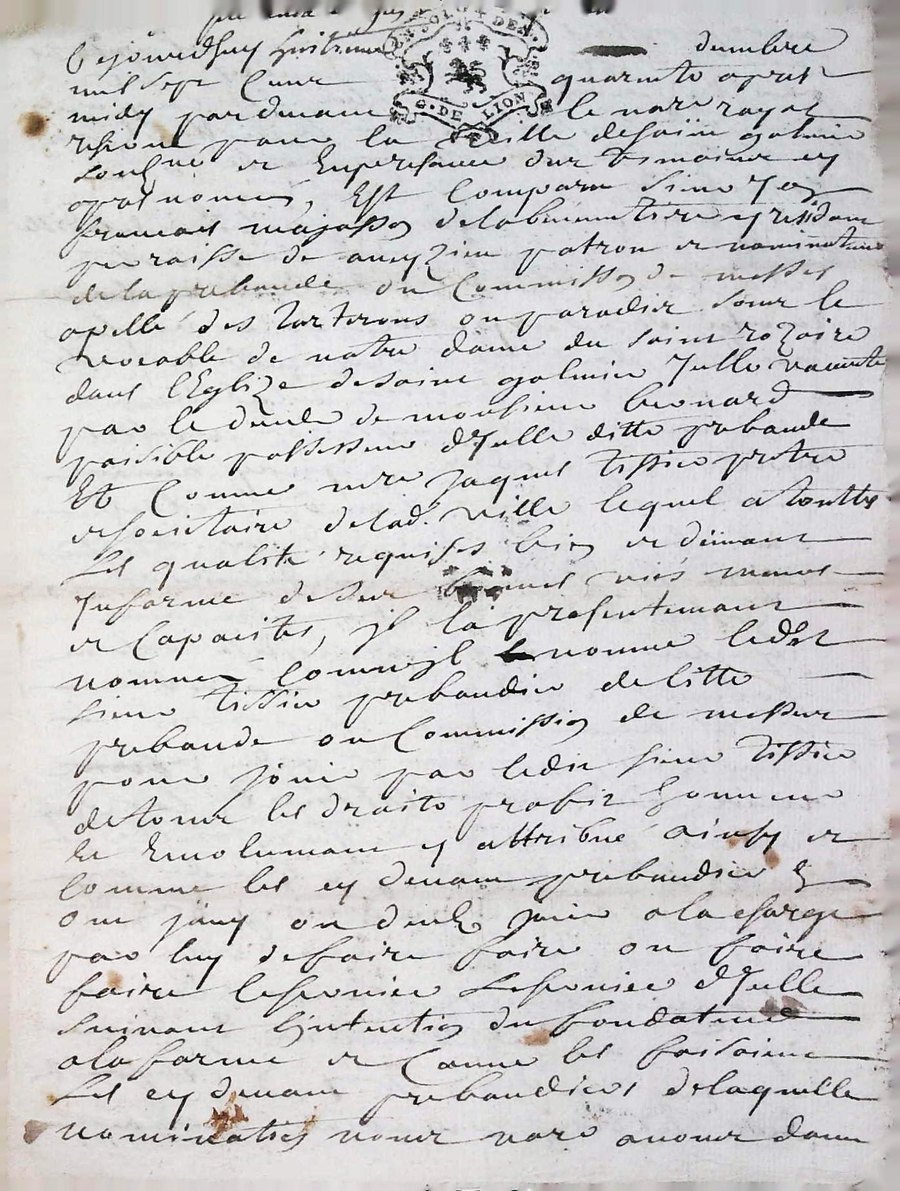 Cejourdhuy huitieme decembre
mil sept cent quarante apres
midy pardevant le nore royal
reservé pour la ville de saint galmier
soussigné et en presence des temoins en
apres nommes, Est comparu sieur Jean
francois majasson delabrunetiere y residant
parroisse de aveyzieu patron et nominateur
de la prebande ou Commission de messes
apellé des tarterons ou paradis sous le
vocable de notre dame du saint rozaire
dans l'Eglize de saint galmier Jcelle vacante
par le decede de monsieur bernard
paisible possesseur dJcelle ditte prebande
Et Comme mre Jaques tissier pretre
et societaire delad. ville lequel a touttes
les qualité requises bien et deumant
Informe de ses bonnes vies meurs
et Capacités, jl la presentemant
nommé Comme jl nomme ledit
sieur tissier prebandier de litte
prebande ou Commission de messes
pour jouir par ledit sieur tissier
de tous les droits profits honneurs
Et Emolumant y attribué ainsy et
comme les cy devant prebandier
ont jouy ou deub jouir a la charge
par luy de faire faire ou faire
faire leservice Leservice dJcelle
suivant l'jntention du fondateur
a la forme et Comme les faisoient
Les cy devant prebandiers de laquelle
nomination nous nore avons donné